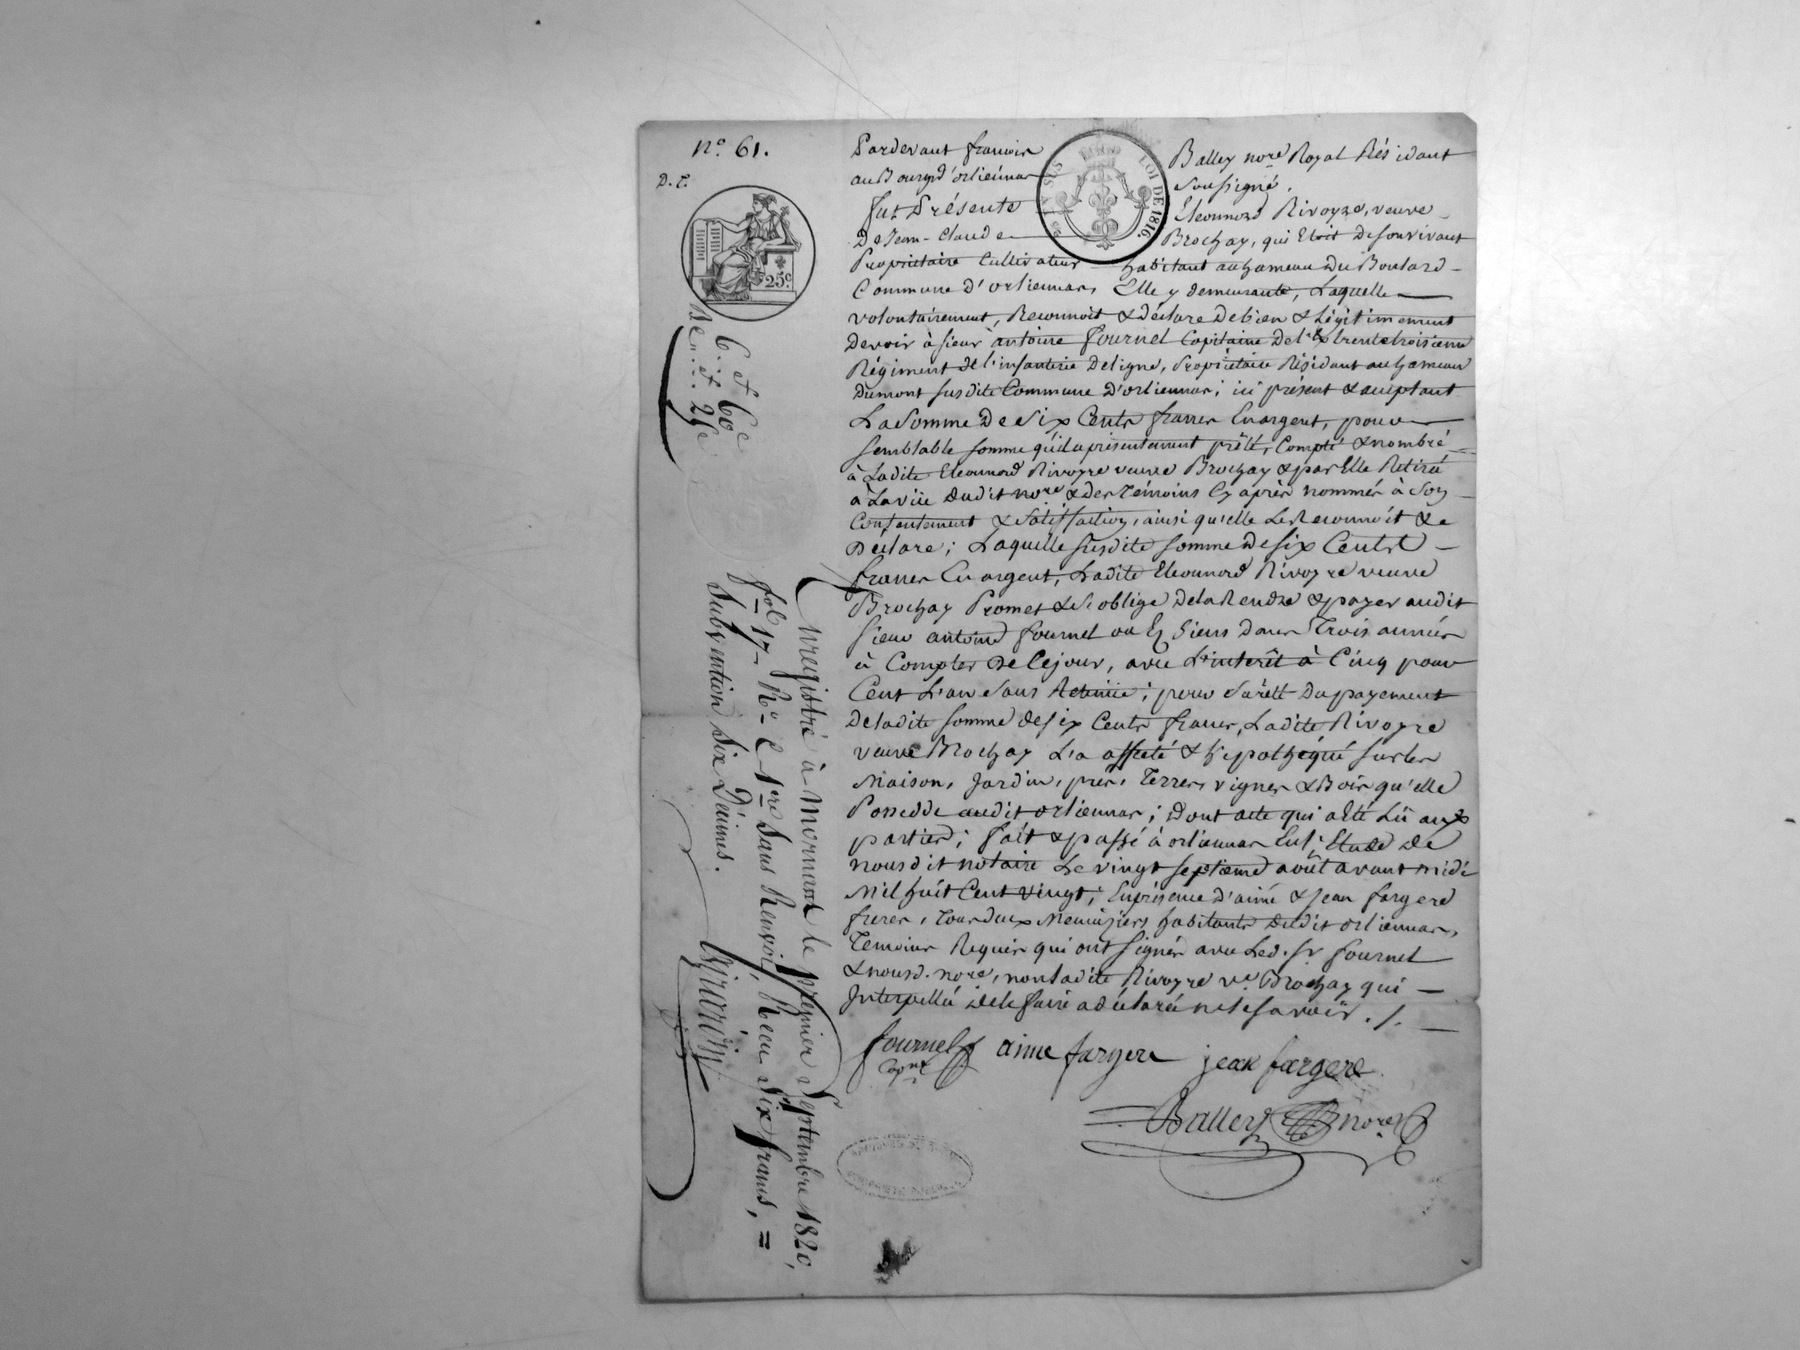 N.º 61.
D. C.
25c
6. et 60c
Pardevant françois Balley nore Royal Résidant
au Bourg d'orliénnas soussigné.
fut Présente Eléonnord Rivoyre, veuve
De Jean-Claude Brochay, qui Etoit De son vivant
Propriétaire Cultivateur habitant au hameau Du Boulard
Commune d'orliennas, Elle y demeurante, Laquelle
volontairement, Reconnoit & déclare De bien & Légitimement
Devoir à sieur antoine Fournel Capitaine De l'Ex trente troisième
Régiment de l'infanterie De ligne, Propriétaire Résidant au hameau
Dumont susdite Commune D'orliennas; ici présent & acceptant
La Somme De Six Cents francs En argent, pour
semblable somme qu'il a présentement prêté, Compté & nombré
à Ladite Eleonnord Rivoyre veuve Brochay & par Elle Retiré
à La vüe dudit nore & des Témoins Cy après nommés à Son
Contentement & Satisfaction, ainsi qu'elle Le Reconnoit & Le
Déclare; Laquelle susdite somme De six Cents
francs En argent, Ladite Eleonnord Rivoyre veuve
Brochay Promet & S'oblige De la Rendre & payer audit
sieur antoine fournel ou Es siens Dans Trois années
à Compter De Ce jour, avec L'interêt à Cinq pour
Cent L'an Sans Retenüe; pour Sureté Du payement
De ladite somme de six Cents francs, Ladite Rivoyre
veuve Brochay L'a affecté & hipothéqué sur les
Maison, Jardin, prés, Terres, vignes & Bois qu'elle
Possedde audit orliennas; Dont acte qui a Eté Lû aux
parties; fait & passé à orliennas En l'Etude De
nousdit notaire Le vingt septieme août avant midi
Mil huit Cent vingt; En présence d'aimé & Jean fargere
freres, Tous deux Menuisiers habitants Dudit orliennas,
Temoins Requis qui ont signés avec Led. Sr fournel
& nousd. nore, non Ladite Rivoyre ve Brochay qui
Interpellée De le faire a déclaré ne le savoir . /.
fournel aime fargere jean fargere
Capne
Balley nore
Enregistré à Mornant le premier Septembre 1820,
fol. 17 Ro C 1ere Sans Renvoi, Recu Six francs,
Subvention Six Décimes.
TIMBRE ROYAL
LOI DE 1816.